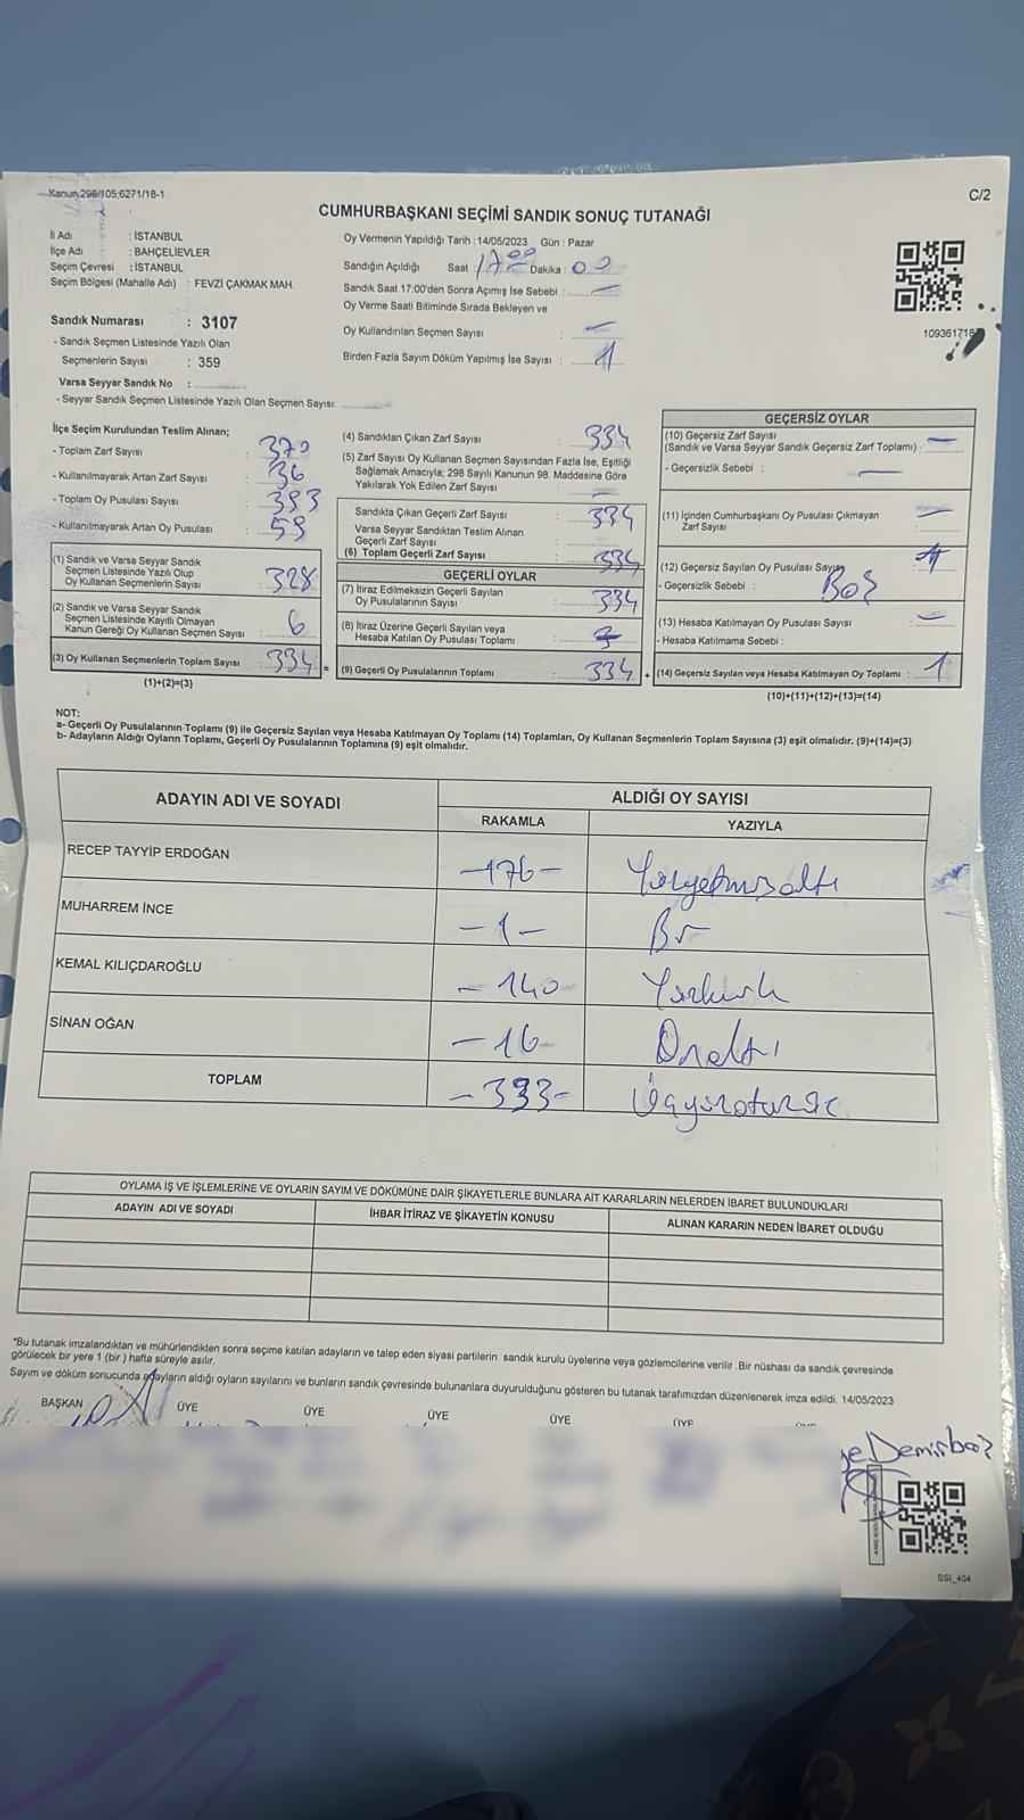 Kanun 298/105;6271/18-1
C/2
CUMHURBAŞKANI SEÇİMİ SANDIK SONUÇ TUTANAĞI
İl Adı : İSTANBUL
İlçe Adı : BAHÇELİEVLER
Seçim Çevresi : İSTANBUL
Seçim Bölgesi (Mahalle Adı) : FEVZİ ÇAKMAK MAH.
Sandık Numarası : 3107
- Sandık Seçmen Listesinde Yazılı Olan
Seçmenlerin Sayısı : 359
Varsa Seyyar Sandık No :
- Seyyar Sandık Seçmen Listesinde Yazılı Olan Seçmen Sayısı:
Oy Vermenin Yapıldığı Tarih : 14/05/2023 Gün : Pazar
Sandığın Açıldığı Saat : 17 00 Dakika : 00
Sandık Saat 17:00'den Sonra Açımış İse Sebebi : —
Oy Verme Saati Bitiminde Sırada Bekleyen ve
Oy Kullandırılan Seçmen Sayısı : —
Birden Fazla Sayım Döküm Yapılmış İse Sayısı : 1
İlçe Seçim Kurulundan Teslim Alınan;
- Toplam Zarf Sayısı : 370
- Kullanılmayarak Artan Zarf Sayısı : 36
- Toplam Oy Pusulası Sayısı : 393
- Kullanılmayarak Artan Oy Pusulası : 59
(1) Sandık ve Varsa Seyyar Sandık
Seçmen Listesinde Yazılı Olup
Oy Kullanan Seçmenlerin Sayısı : 328
(2) Sandık ve Varsa Seyyar Sandık
Seçmen Listesinde Kayıtlı Olmayan
Kanun Gereği Oy Kullanan Seçmen Sayısı : 6
(3) Oy Kullanan Seçmenlerin Toplam Sayısı : 334 =
(1)+(2)=(3)
(4) Sandıktan Çıkan Zarf Sayısı : 334
(5) Zarf Sayısı Oy Kullanan Seçmen Sayısından Fazla İse, Eşitliği
Sağlamak Amacıyla; 298 Sayılı Kanunun 98. Maddesine Göre
Yakılarak Yok Edilen Zarf Sayısı : —
Sandıkta Çıkan Geçerli Zarf Sayısı : 334
Varsa Seyyar Sandıktan Teslim Alınan
Geçerli Zarf Sayısı
(6) Toplam Geçerli Zarf Sayısı : 334
GEÇERLİ OYLAR
(7) İtiraz Edilmeksizin Geçerli Sayılan
Oy Pusulalarının Sayısı : 334
(8) İtiraz Üzerine Geçerli Sayılan veya
Hesaba Katılan Oy Pusulası Toplamı :
(9) Geçerli Oy Pusulalarının Toplamı : 334 +
GEÇERSİZ OYLAR
(10) Geçersiz Zarf Sayısı
(Sandık ve Varsa Seyyar Sandık Geçersiz Zarf Toplamı) : —
- Geçersizlik Sebebi : —
(11) İçinden Cumhurbaşkanı Oy Pusulası Çıkmayan
Zarf Sayısı : —
(12) Geçersiz Sayılan Oy Pusulası Sayısı : 1
- Geçersizlik Sebebi : Boş
(13) Hesaba Katılmayan Oy Pusulası Sayısı : —
- Hesaba Katılmama Sebebi :
(14) Geçersiz Sayılan veya Hesaba Katılmayan Oy Toplamı : 1
(10)+(11)+(12)+(13)=(14)
NOT:
a- Geçerli Oy Pusulalarının Toplamı (9) ile Geçersiz Sayılan veya Hesaba Katılmayan Oy Toplamı (14) Toplamları, Oy Kullanan Seçmenlerin Toplam Sayısına (3) eşit olmalıdır. (9)+(14)=(3)
b- Adayların Aldığı Oyların Toplamı, Geçerli Oy Pusulalarının Toplamına (9) eşit olmalıdır.
ADAYIN ADI VE SOYADI ALDIĞI OY SAYISI
RAKAMLA YAZIYLA
RECEP TAYYİP ERDOĞAN -176- Yüzyetmişaltı
MUHARREM İNCE -1- Bir
KEMAL KILIÇDAROĞLU - 140- Yüzkırk
SİNAN OĞAN -16- Onaltı
TOPLAM -333- Üçyüzotuzüç
OYLAMA İŞ VE İŞLEMLERİNE VE OYLARIN SAYIM VE DÖKÜMÜNE DAİR ŞİKAYETLERLE BUNLARA AİT KARARLARIN NELERDEN İBARET BULUNDUKLARI
ADAYIN ADI VE SOYADI İHBAR İTİRAZ VE ŞİKAYETİN KONUSU ALINAN KARARIN NEDEN İBARET OLDUĞU
*Bu tutanak imzalandıktan ve mühürlendikten sonra seçime katılan adayların ve talep eden siyasi partilerin sandık kurulu üyelerine veya gözlemcilerine verilir. Bir nüshası da sandık çevresinde
görülecek bir yere 1 (bir) hafta süreyle asılır.
Sayım ve döküm sonucunda adayların aldığı oyların sayılarını ve bunların sandık çevresinde bulunanlara duyurulduğunu gösteren bu tutanak tarafımızdan düzenlenerek imza edildi. 14/05/2023
BAŞKAN ÜYE ÜYE ÜYE ÜYE ÜYE
SSI_404